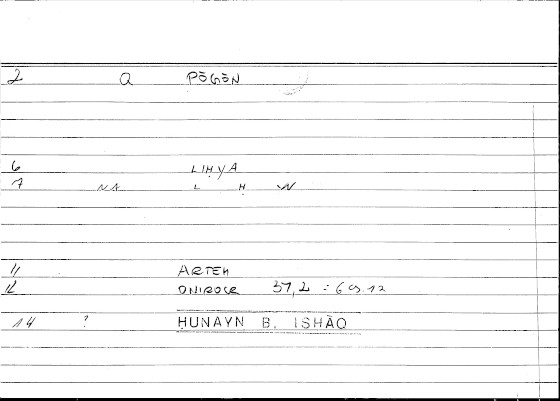 2 Q PŌGŌN
6 LIḤYA
7 NA L Ḥ W
11 ARTEM
12 ONIROCR 37,2 = 69,12
14 ? HUNAYN B. ISHĀQ